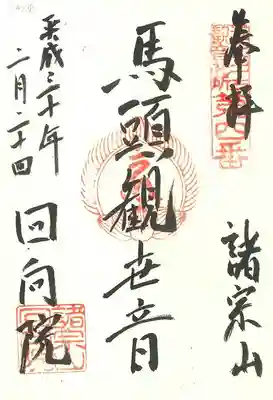 奉拝
諸宗山
馬頭観世音
平成三十年
二月二十四
回向院